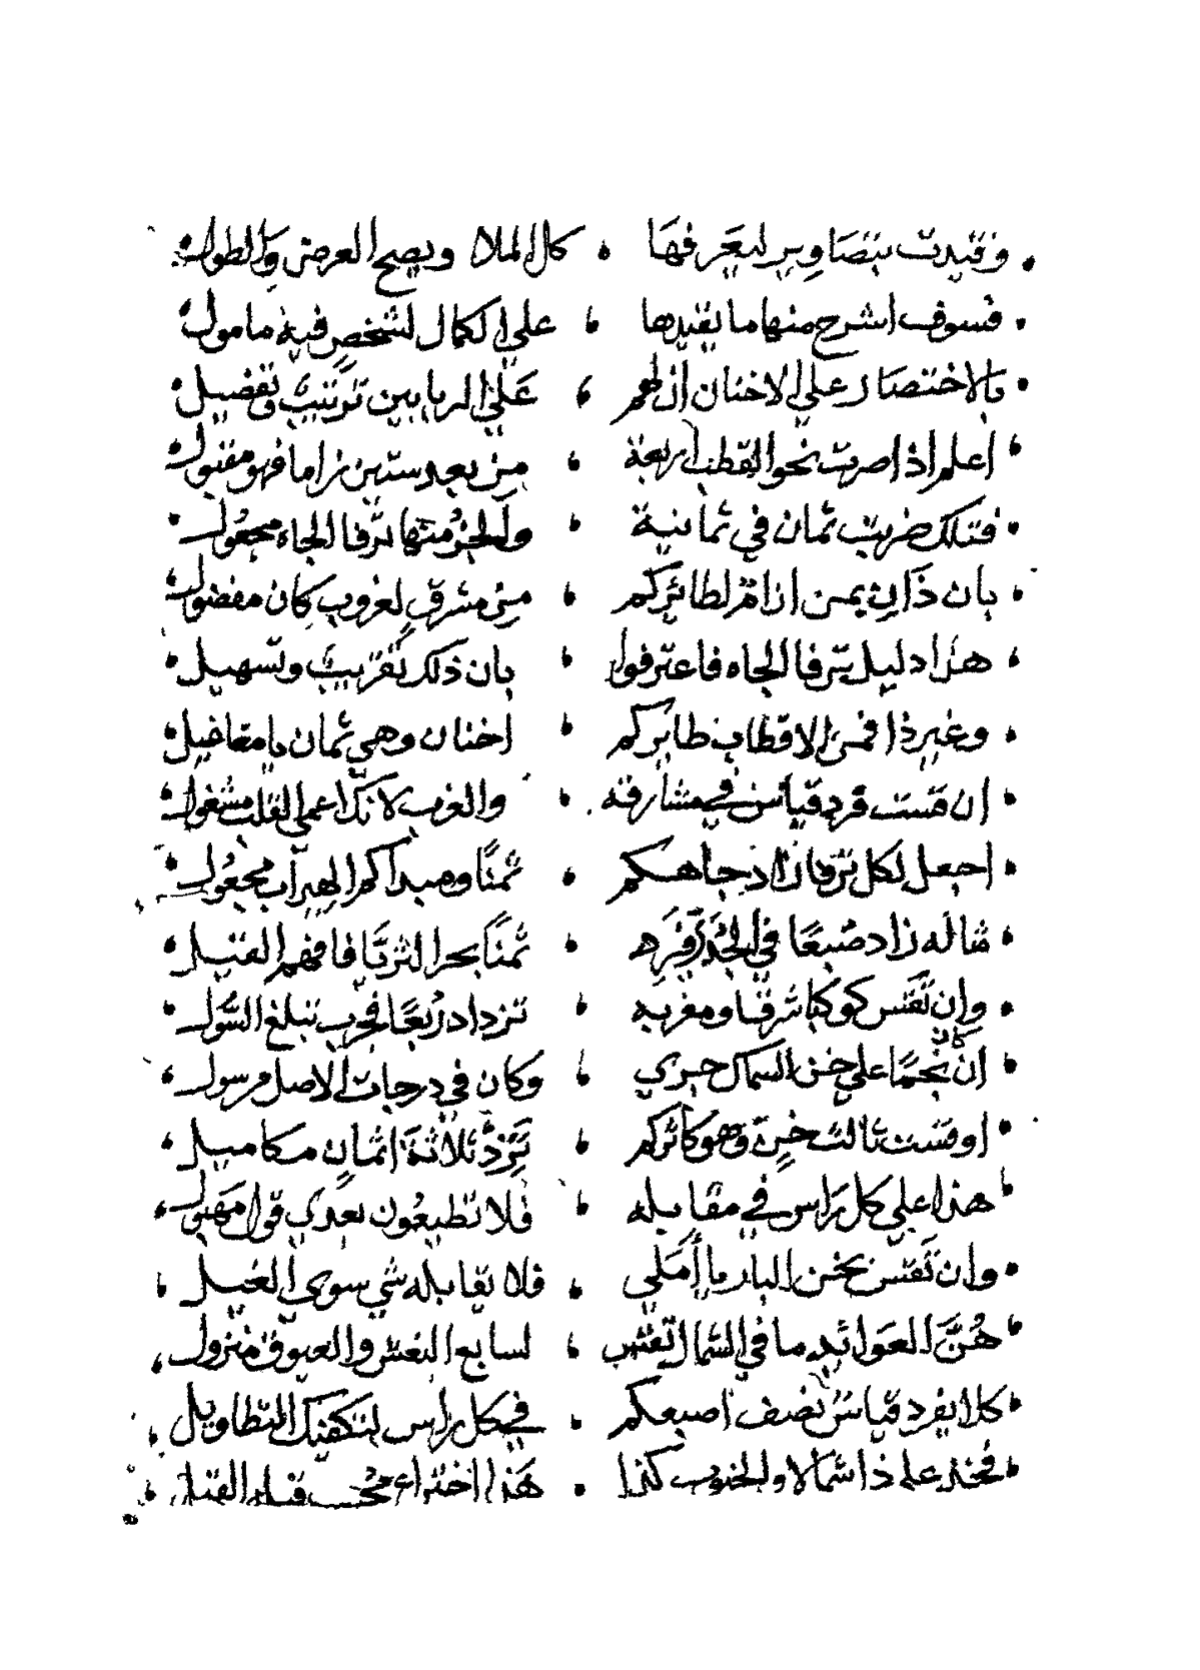 وقيدت بتصاوير ليعرفها ، كل الملا ويصح العرض والطول
فسوف اشرح منها ما يقيدها ، علي الكمال لشخص فيه مامول
بالاختصار علي الاخنان ان لهم ، علي الربابين ترتيب وتفضيل
اعلم اذا صرت نحو القطب اربعة ، من بعد ستين زاما فهو مقبول
فتلك ضربت ثمان في ثمانية ، والجزؤ منها ترفا الجاه مجعول
بان ذا في يمين ازام لطائركم ، من مشرق لغروب كان مفضول
هذا دليل ترفا الجاه فاعترفوا ، بان ذلك تقريب وتسهيل
وغير ذا فمن الاقطاب طايركم ، اخنان وهي ثمان يا مغافيل
ان قست فرد قياس في مشارقه ، والغرب لانك اعمي القلب مشغول
اجعل لكل ترفا اذ جاهكم ، ثمنا ومبدا كم الهيراب مجعول
فما له زاد صبعا في الجدي ، ثمنا بحر الثريا فافهم القيل
وان تقس كوكبا شرقا ومغربه ، تزداد ربعا فجرب تبلغ السول
ان كان نجما علي خن السماك جري ، وكان في درجات الاصل مرسول
او قست ثالث خن وهو كاثركم ، تزد ثلاثة اثمان مكاميل
هذا علي كل راس في مقابله ، فلا تطيعون بعدي قول مهبول
وان تقس بخن البار يا املي ، فلا تقابله شي سوي الخيل
هن العوائد ما في الشمال تقس ، لسابع النعش والعيوق منزول
كلا يفرد قياس نصف اصبعكم ، في كل راس لتكفيك التطاويل
فخذ علي ذا شمالا والجنوب كذا ، هذا اختراع القيل